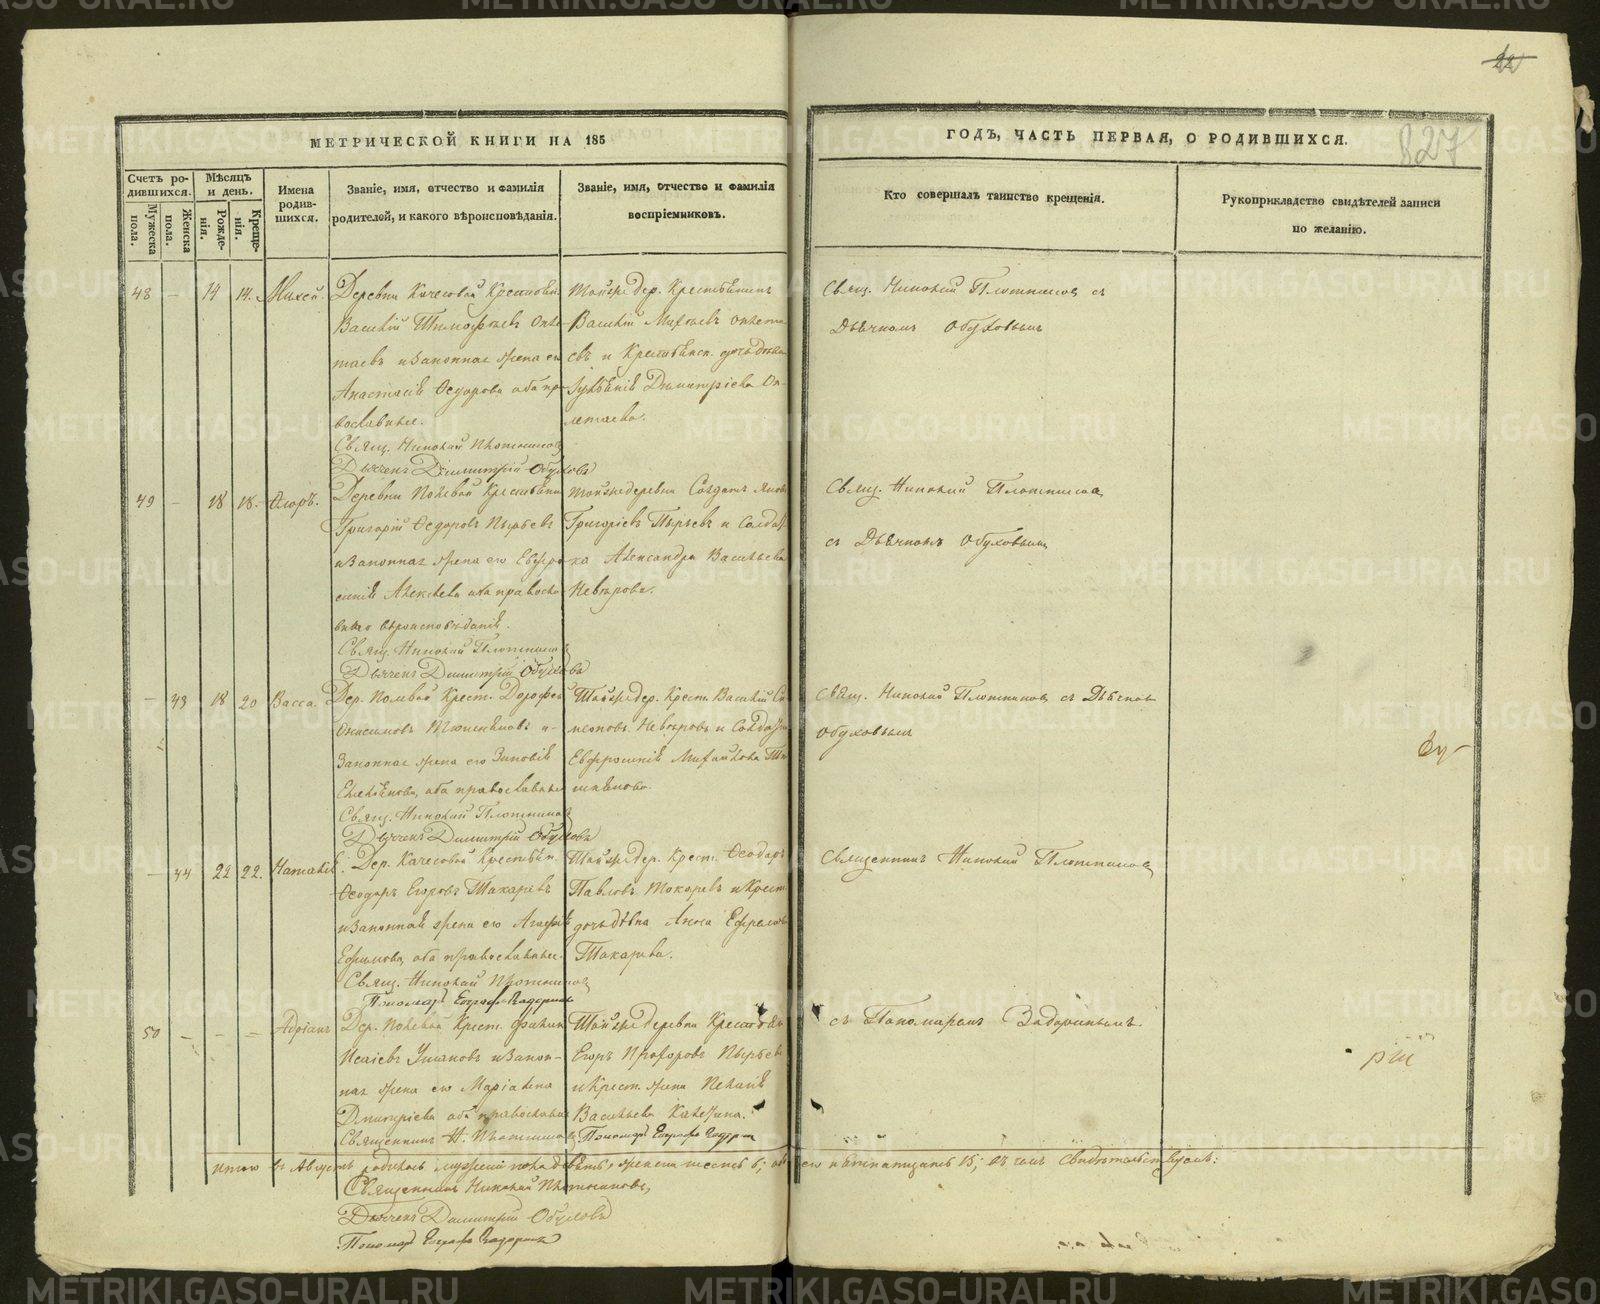 22
827
МЕТРИЧЕСКОЙ КНИГИ НА 185
ГОДЪ, ЧАСТЬ ПЕРВАЯ, О РОДИВШИХСЯ.
Счетъ родившихся.
Мужеска пола.
Женска пола.
Мѣсяцъ и день.
Рожденія.
Крещенія.
Имена родившихся.
Званіе, имя, отчество и фамилія
родителей, и какого вѣроисповѣданія.
Званіе, имя, отчество и фамилія
воспріемниковъ.
Кто совершалъ таинство крещенія.
Рукоприкладство свидѣтелей записи
по желанію.
48 – 14 14. Михей.
Деревни Качесовой Крестьянинъ
Василій Тимофѣевъ
и законная жена его
Анастасія Ѳедорова оба пра-
вославные.
Свящ. Николай Плотниковъ
Дьячекъ Димитрій Обуховъ
Той же дер. Крестьянинъ
Василій
и Крестьянск. дочь дѣвка
Димитріева
Свящ. Николай Плотниковъ съ
Дьячкомъ Обуховымъ
49 – 18 18. Ѳлоръ.
Деревни Крестьянинъ
Григорій Ѳедоровъ Пырьевъ
и законная жена его Евфро-
синія Алексѣева оба правосла-
внаго вѣроисповѣданія.
Свящ. Николай Плотниковъ
Дьячекъ Димитрій Обуховъ
Той же деревни Солдатъ Яковъ
Григорьевъ Пырьевъ и Солдат-
ка Александра Васильева
Невѣрова.
Свящ. Николай Плотниковъ
съ Дьячкомъ Обуховымъ
– 43 18 20 Васса.
Дер. Крест. Дорофей
Онисимовъ и
Законная жена его Зиновія
Емельянова, оба православные
Свящ. Николай Плотниковъ
Дьячекъ Димитрій Обуховъ
Той же дер. Крест. Василій
Невѣровъ и Солдатка
Евфросинія Михайлова
Свящ. Николай Плотниковъ съ Дьячкомъ
Обуховымъ
– 44 22 22. Наталія.
Дер. Качесовой Крестьян.
Ѳеодоръ Егоровъ Токаревъ
и законная жена его Агафія
Ефимова, оба православные.
Свящ. Николай Плотниковъ
Пономарь Евграфъ Задоринъ
Той же дер. Крест. Ѳеодоръ
Павловъ Токаревъ и Крест.
дочь дѣвка Анна
Токарева.
Священникъ Николай Плотниковъ
съ Пономаремъ Задоринымъ.
50 – – – Адріанъ
Дер. Крест.
Исаіевъ Ушаковъ и закон-
ная жена его Маріамна
Дмитріева оба православные
Священникъ Н. Плотниковъ
Той же деревни Крестьян.
Егоръ Прохоровъ Пырьевъ
и Крест. жена Пелагія
Васильева
Пономарь Евграфъ Задоринъ
Итого въ Августѣ родилось мужеска пола девять, женска шесть 6; обоего пятнадцать 15; въ чемъ свидѣтельствуемъ:
Священникъ Николай Плотниковъ,
Дьячекъ Димитрій Обуховъ
Пономарь Евграфъ Задоринъ
METRIKI.GASO-URAL.RU